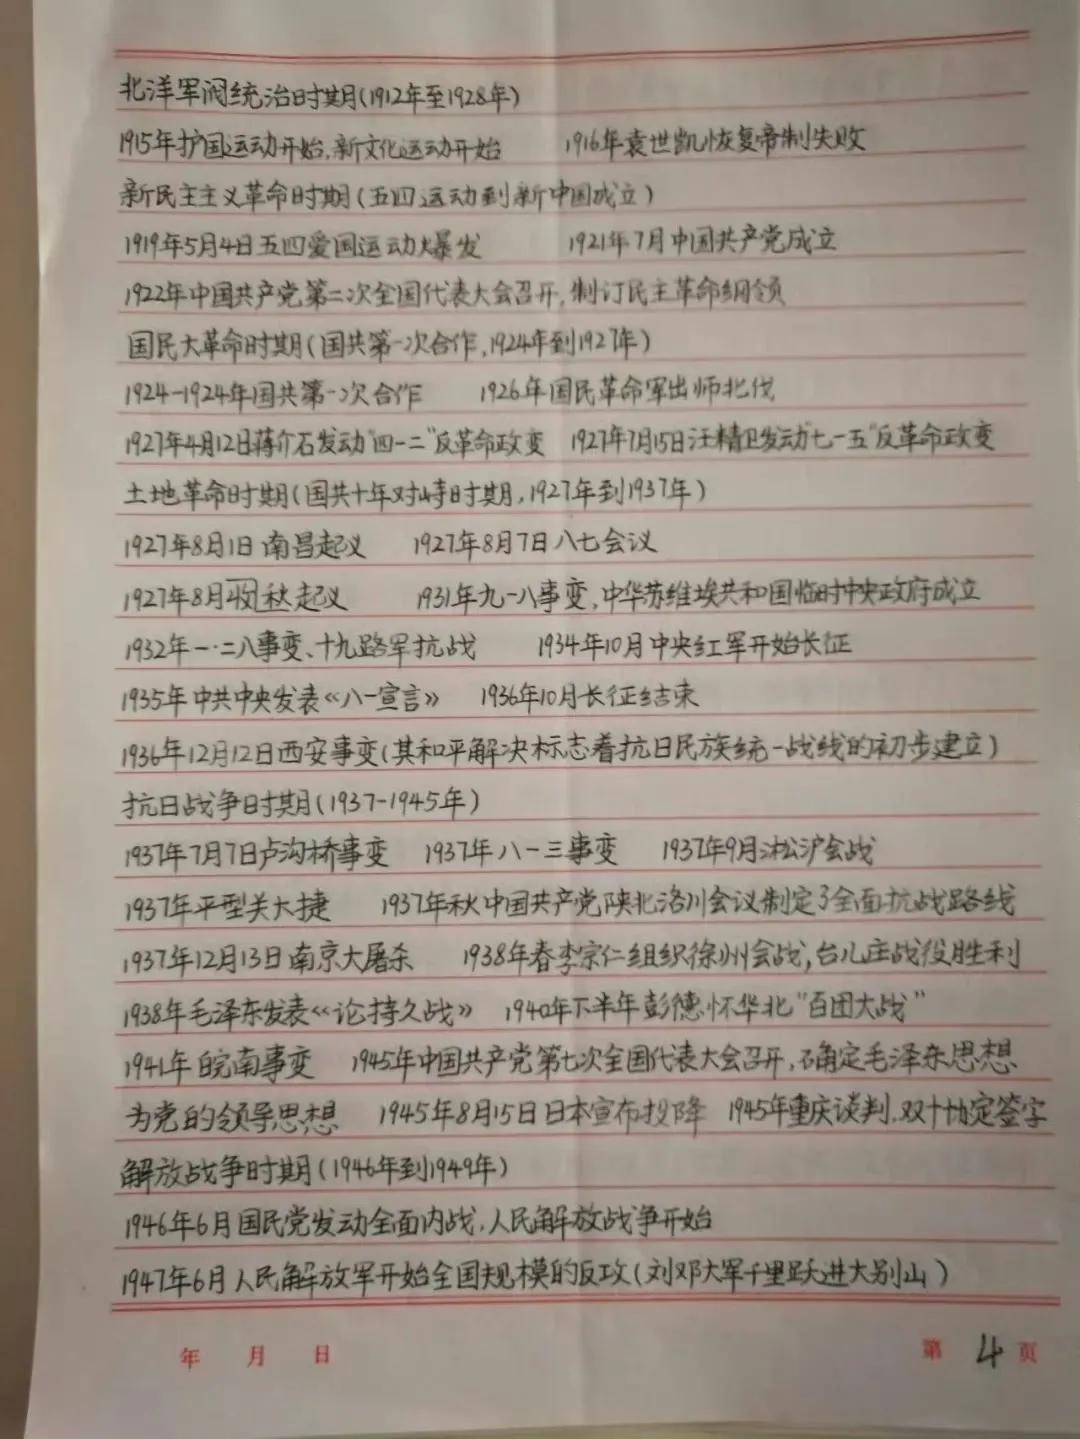 北洋军阀统治时期(1912年至1928年)
1915年护国运动开始,新文化运动开始 1916年袁世凯恢复帝制失败
新民主主义革命时期(五四运动到新中国成立)
1919年5月4日五四爱国运动爆发 1921年7月中国共产党成立
1922年中国共产党第二次全国代表大会召开,制订民主革命纲领
国民大革命时期(国共第一次合作,1924年到1927年)
1924-1924年国共第一次合作 1926年国民革命军出师北伐
1927年4月12日蒋介石发动"四一二"反革命政变 1927年7月15日汪精卫发动"七一五"反革命政变
土地革命时期(国共十年对峙时期,1927年到1937年)
1927年8月1日南昌起义 1927年8月7日八七会议
1927年8月收秋起义 1931年九一八事变,中华苏维埃共和国临时中央政府成立
1932年一·二八事变、十九路军抗战 1934年10月中央红军开始长征
1935年中共中央发表《八一宣言》 1936年10月长征结束
1936年12月12日西安事变(其和平解决标志着抗日民族统一战线的初步建立)
抗日战争时期(1937-1945年)
1937年7月7日卢沟桥事变 1937年八一三事变 1937年9月淞沪会战
1937年平型关大捷 1937年秋中国共产党陕北洛川会议制定了全面抗战路线
1937年12月13日南京大屠杀 1938年春李宗仁组织徐州会战,台儿庄战役胜利
1938年毛泽东发表《论持久战》 1940年下半年彭德怀华北"百团大战"
1941年皖南事变 1945年中国共产党第七次全国代表大会召开,确定毛泽东思想
为党的领导思想 1945年8月15日日本宣布投降 1945年重庆谈判,双十协定签字
解放战争时期(1946年到1949年)
1946年6月国民党发动全面内战,人民解放战争开始
1947年6月人民解放军开始全国规模的反攻(刘邓大军千里跃进大别山)
年 月 日 第 4 页